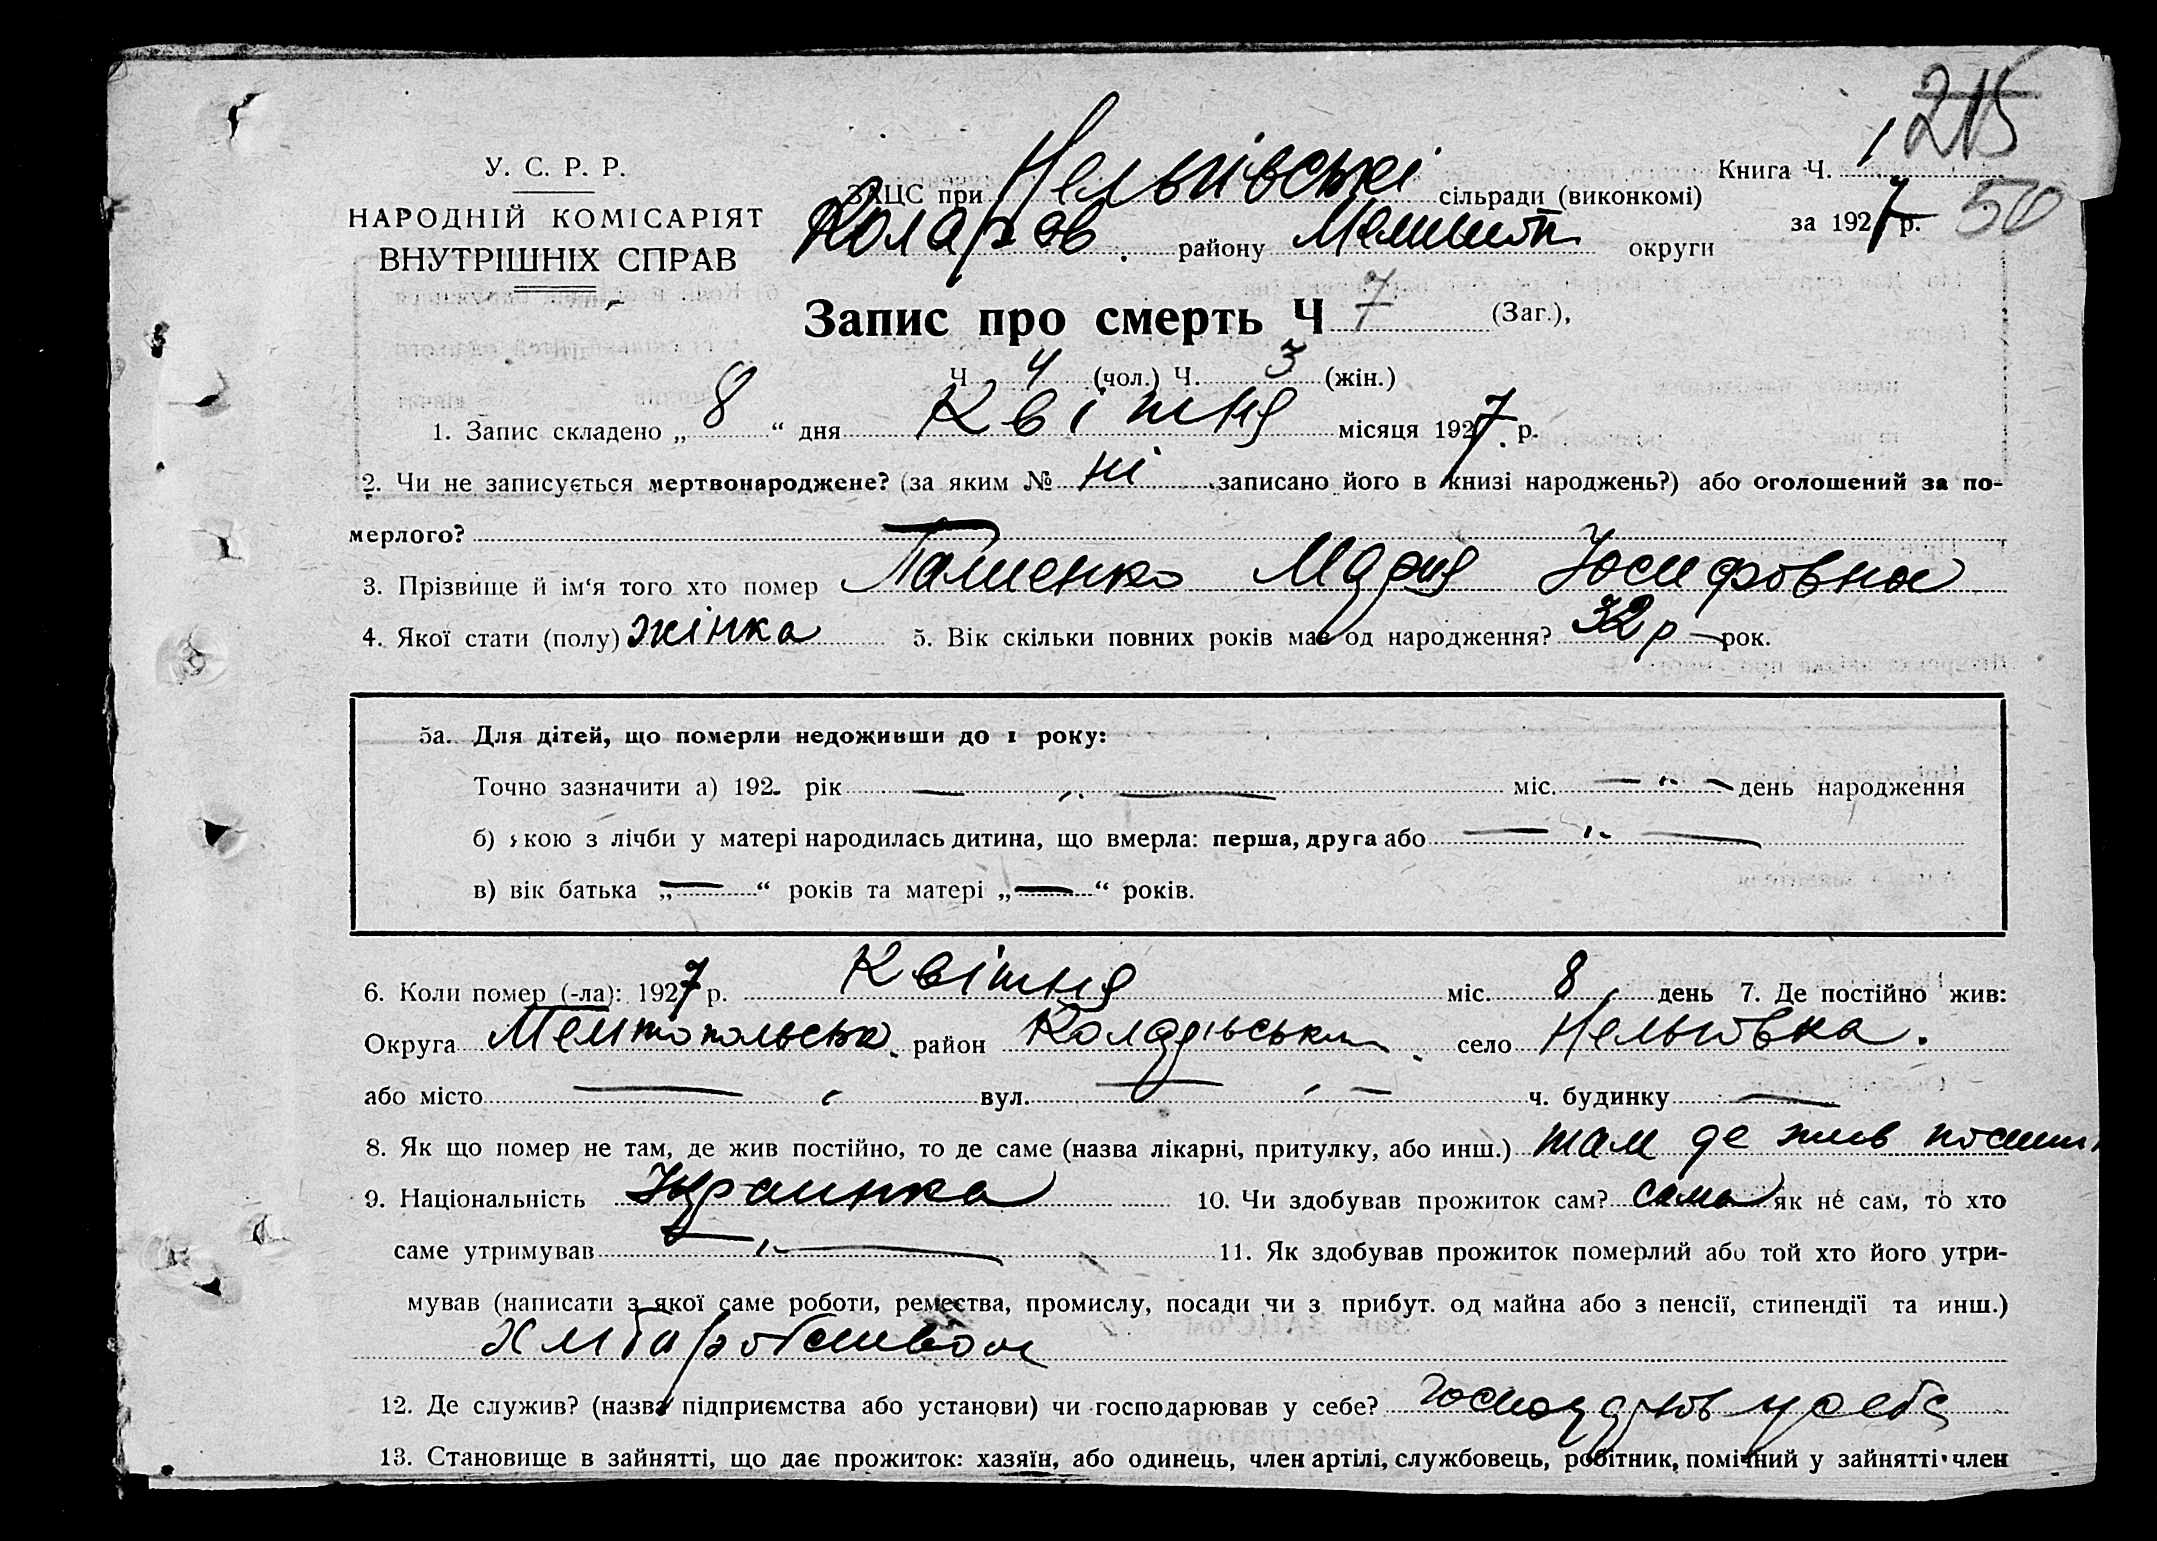 215
У. С. Р. Р.
НАРОДНІЙ КОМІСАРІЯТ
ВНУТРІШНІХ СПРАВ
ЗАЦС при Нельгівські сільради (виконкомі)
Книга Ч. 1
Коларов. району Мелитоп округи
за 1927 р. 50
Запис про смерть Ч 7 (Заг.),
Ч 4 (чол.) Ч. 3 (жін.)
1. Запис складено „ 8 “ дня Квітня місяця 1927 р.
2. Чи не записується мертвонароджене? (за яким № ні записано його в книзі народжень?) або оголошений за по-
мерлого?
3. Прізвище й ім‘я того хто помер Мария Иосифовна
4. Якої стати (полу) жінка 5. Вік скільки повних років мав од народження? 32 р рок.
5а. Для дітей, що померли недоживши до 1 року:
Точно зазначити а) 192 рік — „ — міс. — „ — день народження
б) якою з лічби у матері народилась дитина, що вмерла: перша, друга або — „ —
в) вік батька „ — “ років та матері „ — “ років.
6. Коли помер (-ла): 1927 р. Квітня міс. 8 день 7. Де постійно жив:
Округа район село Нельгівка.
або місто — вул. — ч. будинку —
8. Як що помер не там, де жив постійно, то де саме (назва лікарні, притулку, або инш.) там де жив
9. Національність 10. Чи здобував прожиток сам? сама як не сам, то хто
саме утримував — „ — 11. Як здобував прожиток померлий або той хто його утри-
мував (написати з якої саме роботи, ремества, промислу, посади чи з прибут. од майна або з пенсії, стипендії та инш.)
12. Де служив? (назва підприємства або установи) чи господарював у себе? у себе
13. Становище в зайнятті, що дає прожиток: хазяїн, або одинець, член артілі, службовець, робітник, помічний у зайнятті член